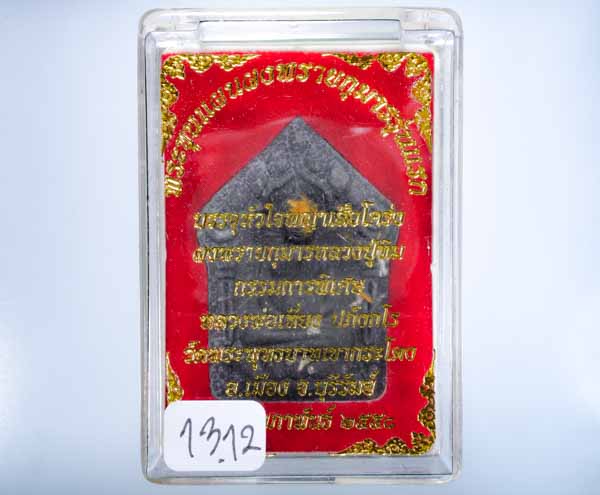 พระขุนแผนผงพรายกุมารรุ่นแรก
บรรจุหัวใจพญาเสือโคร่ง
ผงพรายกุมารหลวงปู่ทิม
กรรมการพิเศษ
หลวงพ่อเที่ยง ปภังกโร
วัดพระพุทธบาทเขากระโดง
อ.เมือง จ.บุรีรัมย์
๒๕๕๐
13.12